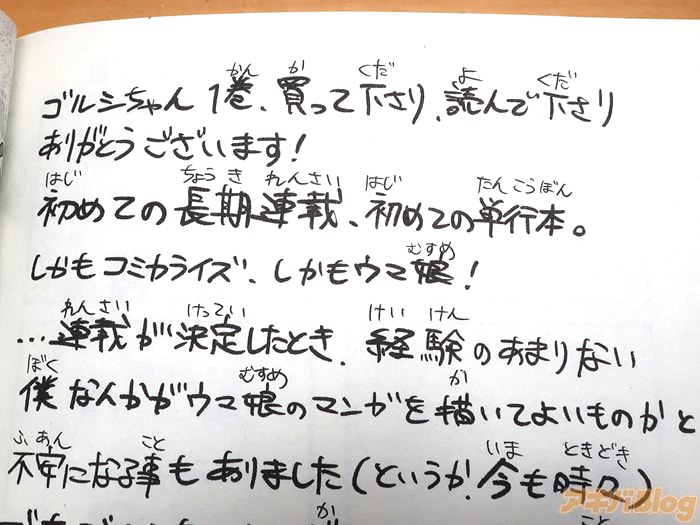 ゴルシちゃん1巻、買って下さり、読んで下さり
ありがとうございます!
初めての長期連載、初めての単行本。
しかもコミカライズ、しかもウマ娘!
…連載が決定したとき、経験のあまりない
僕なんかがウマ娘のマンガを描いてよいものかと
不安になる事もありました(というか今も時々)
アキバBlog